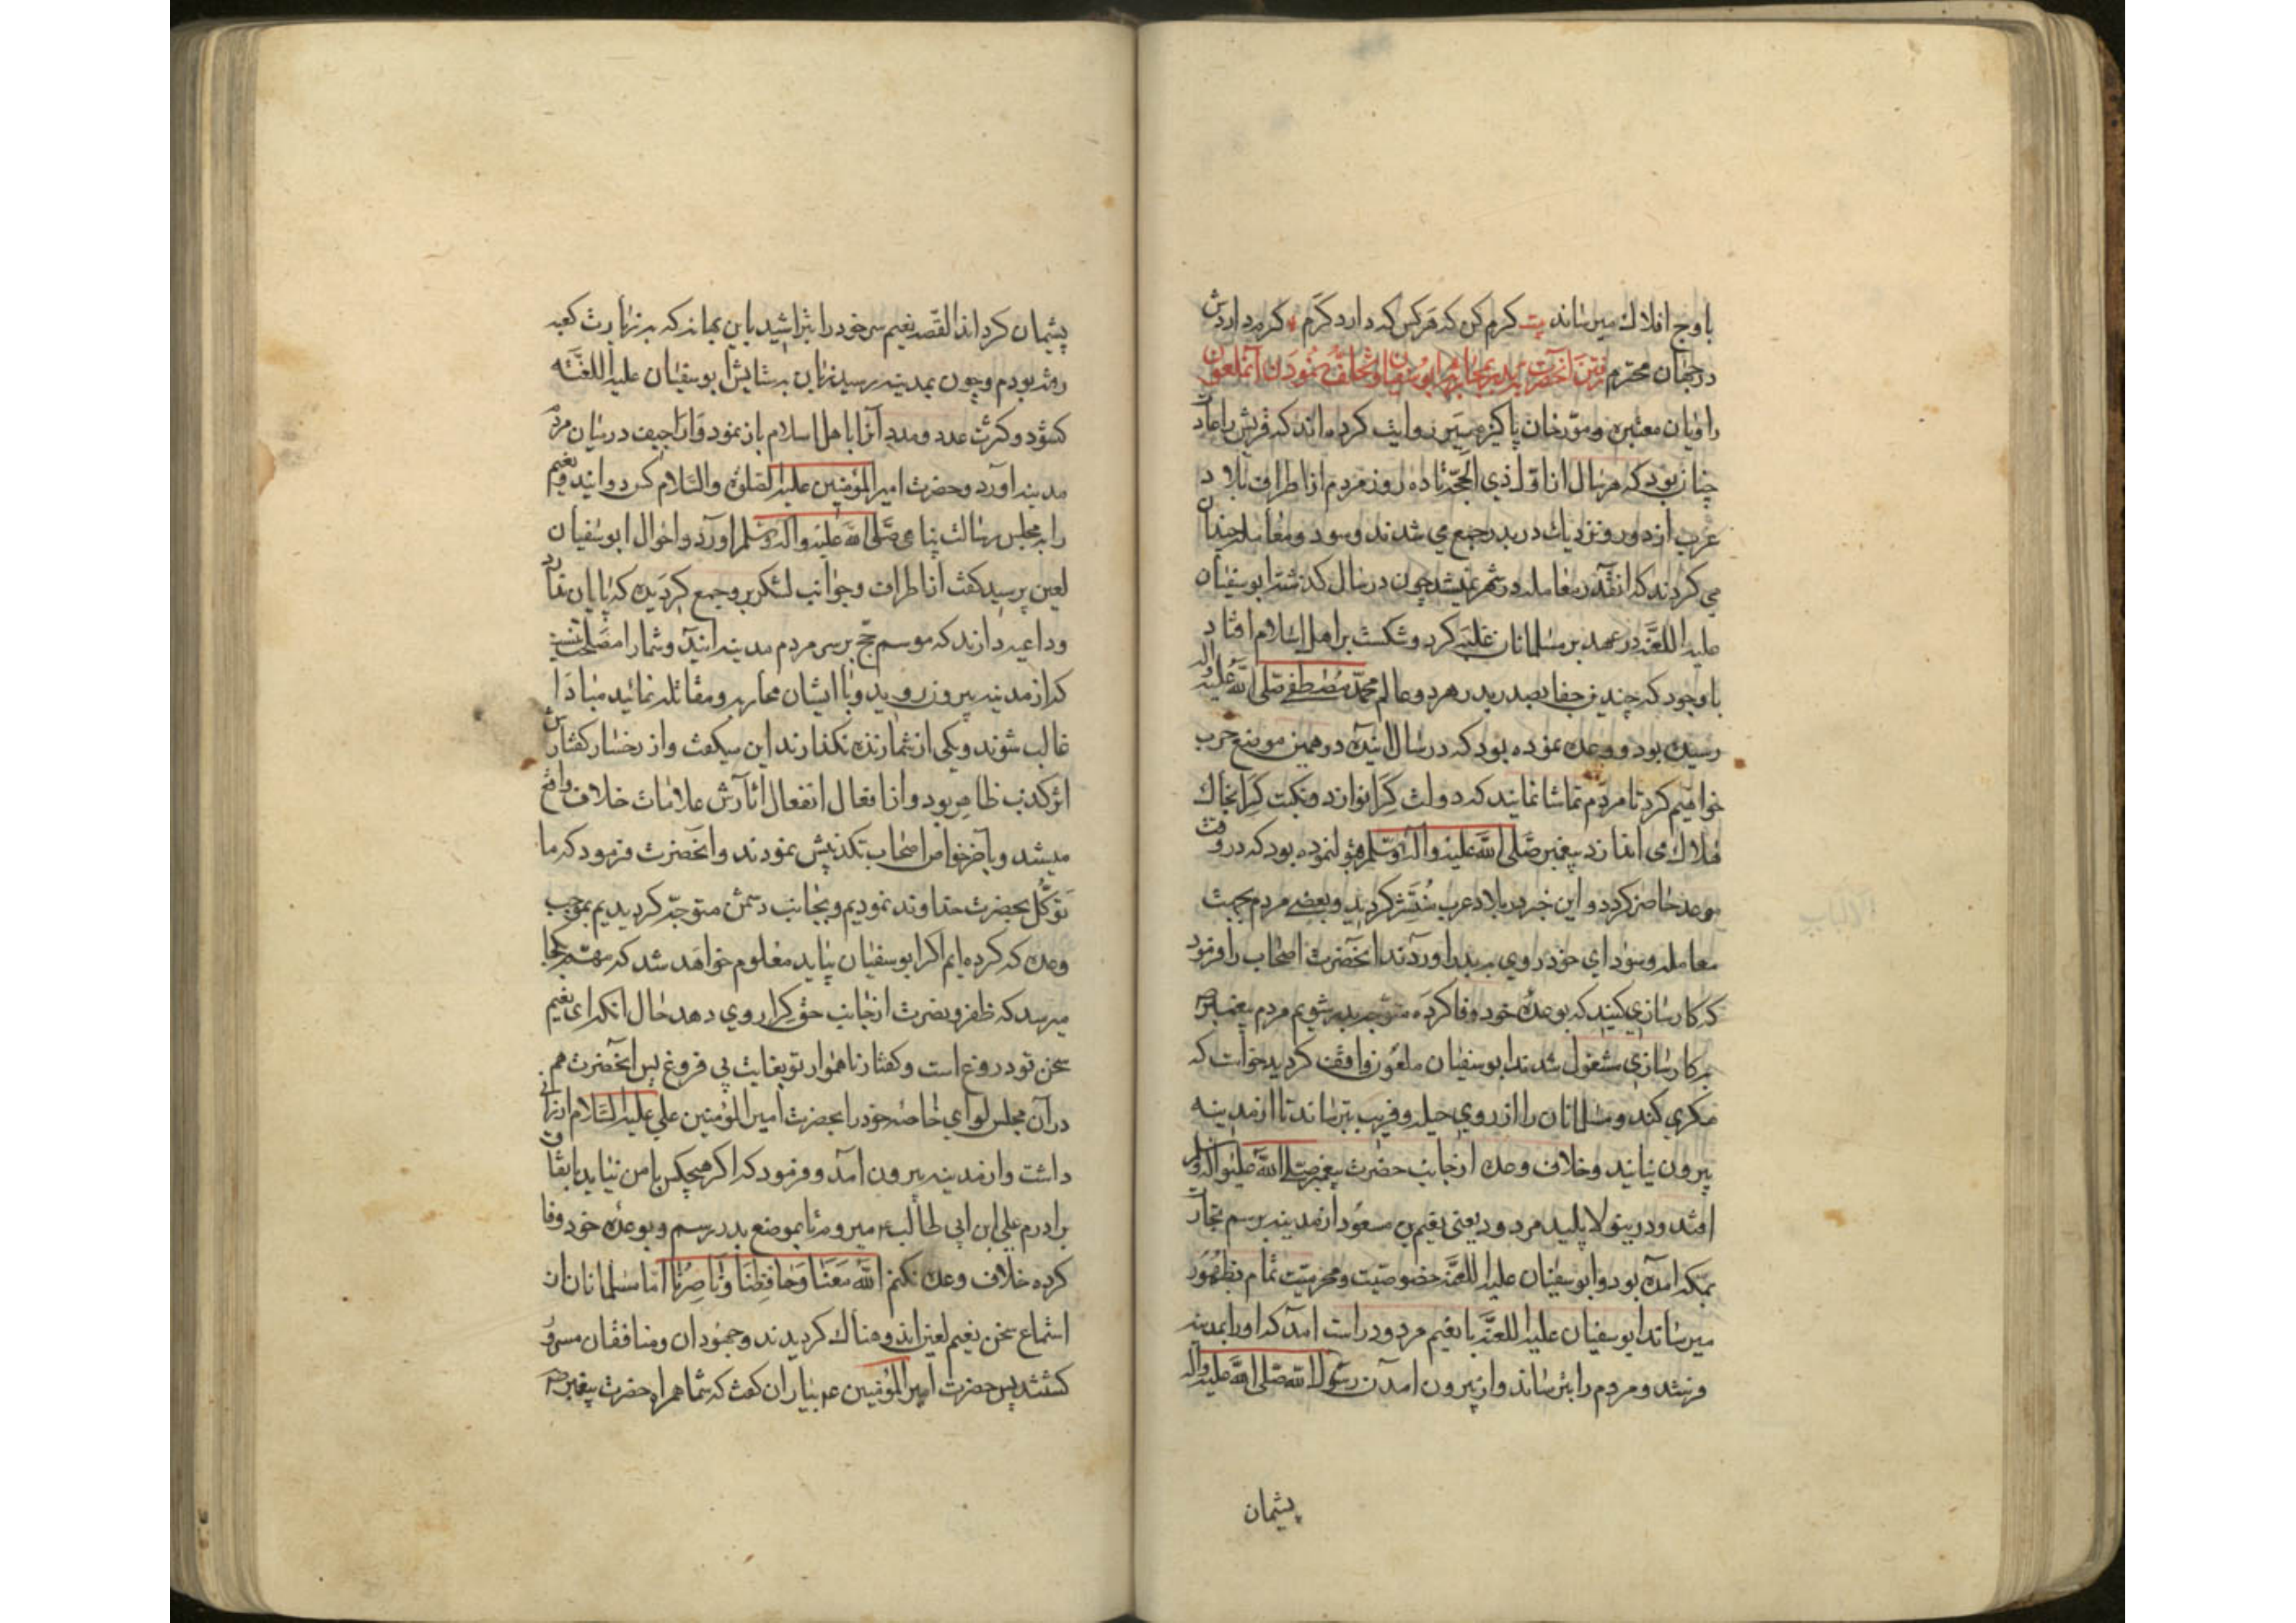 باوج افلاك ميرساند بيت كرم كن كه هركس كه دارد كرم كرم داردش
در جهان محترم رفتن آنحضرت ببدر بمحاربه ابوسفيان و تخلف نمودن آنملعون
راويان معتبر و مورخان پاكيزه سير روايت كرده اند كه قريش را عادت
چنان بود كه هر سال از اول ذي الحجة تا ده روز مردم از اطراف بلاد
عرب از دور و نزديك در بدر جمع مي شدند و سود و معامله چندان
مي كردند كه انقدر معامله در شهر نميشد چون در سال گذشته ابوسفيان
عليه اللعنة در عهد بر مسلمانان غلبه كرد و شكست بر اهل اسلام افتاد
باوجود كه چندين جفا بصدر بدر هر دو عالم محمد مصطفى صلى الله عليه واله
رسيده بود و وعده نموده بود كه در سال اينده در همين موضع حرب
خواهيم كرد تا مردم تماشا نمايند كه دولت كرا نوازد و نكبت كرا بخاك
هلاك مي اندازد پيغمبر صلى الله عليه واله وسلم قبول نموده بود كه در وقت
موعد حاضر كردد و اين خبر در بلاد عرب منتشر كرديد و بعضي مردم بجهت
معامله و سوداي خود روي ببدر اوردند انحضرت اصحاب را فرمود
كه كارسازي كنيد كه بوعده خود وفا كرده متوجه بدر شويم مردم پيغمبر ص
بكارسازي مشغول شدند ابوسفيان ملعون واقف كرديد خواست كه
مكري كند و مسلمانان را از روي حيله و فريب بترساند تا از مدينه
بيرون نيايند و خلاف وعده از جانب حضرت پيغمبر صلى الله عليه واله وسلم
افتد و درينولا پليد مردود يعني نعيم بن مسعود از مدينه برسم تجارت
بمكه آمده بود و ابوسفيان عليه اللعنة خصوصيت و محرميت تمام بظهور
ميرساند ابوسفيان عليه اللعنة با نعيم مردود راست آمد كه او را بمدينه
فرستد و مردم را بترساند و از بيرون آمدن رسول الله صلى الله عليه واله
پشيمان
پشيمان كرداند القصه نعيم سر خود را بتراشيد باين بهانه كه بزيارت كعبه
رفته بودم و چون بمدينه رسيد زبان بستايش ابوسفيان عليه اللعنه
كشود و كثرت عدد و مدد آنرا با اهل اسلام باز نمود و اراجيف در ميان مردم
مدينه آورد و حضرت امير المؤمنين عليه الصلوة والسلام كس دوانيد و نعيم
را بمجلس رسالت پناهي صلى الله عليه واله وسلم اورد و احوال ابوسفيان
لعين پرسيد كفت از اطراف و جوانب لشكر برو جمع كرديده كه پايان ندارد
و داعيه دارند كه موسم حج بر سر مردم مدينه ايند و شما را مصلحت نيست
كه از مدينه بيرون رويد و با ايشان محاربه و مقاتله نمائيد مبادا
غالب شوند و يكى از شما زنده نكذارند اين ميكفت و از رخسار كفتارش
اثر كذب ظاهر بود و از افعال انفعال آثارش علامات خلاف واقع
ميشد و بآخر خواص اصحاب تكذيبش نمودند و انحضرت فرمود كه ما
توكل بحضرت خداوند نموديم و بجانب دشمن متوجه كرديديم بموجب
وعده كه كرده ايم اكر ابوسفيان بيايد معلوم خواهد شد كه مهم بكجا
ميرسد كه ظفر و نصرت از جانب حق كرا روي دهد حال انكه اى نعيم
سخن تو دروغ است و كفتار ناهموار تو بغايت بي فروغ پس انحضرت هم
در آن مجلس لواي خاصه خود را بحضرت امير المؤمنين علي عليه السلام ارزاني
داشت و از مدينه بيرون آمد و فرمود كه اكر هيچكس با من نيايد باتفاق
برادرم علي ابن ابي طالب ع ميروم تا بموضع بدر رسم و بوعده خود وفا
كرده خلاف وعده نكنم الله معنا وحافظنا وناصرنا اما مسلمانان از
استماع سخن نعيم لعين اندوهناك كرديدند و جهودان و منافقان مسرور
كشتند پس حضرت امير المؤمنين ع بياران كفت كه شما همراه حضرت پيغمبر ص